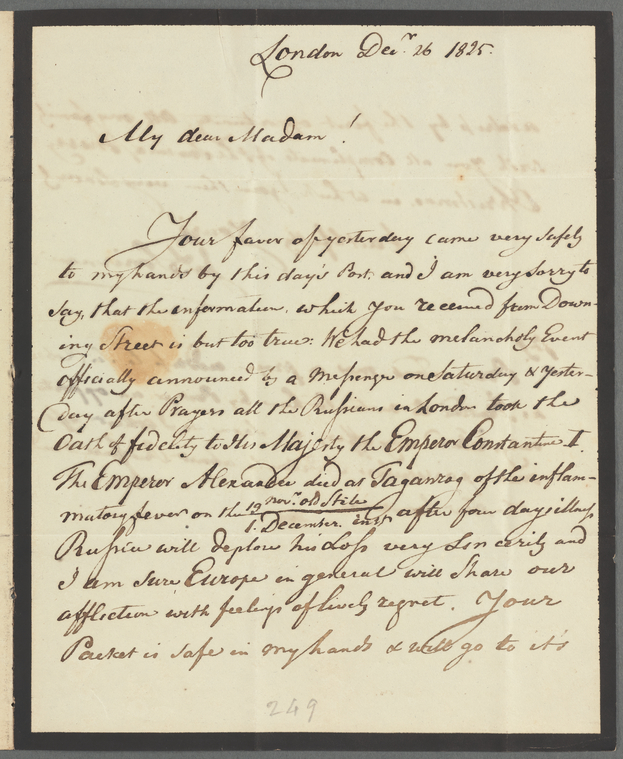 London Decr. 26 1825.
My dear Madam!
Your favor of yesterday came very safely
to my hands by this day's Post, and I am very sorry to
say, that the information, which you received from Down-
ing Street is but too true: We had the melancholy Event
officially announced by a Messenger on Saturday & yester-
day after Prayers all the Russians in London took the
Oath of fidelity to His Majesty the Emperor Constantine I.
The Emperor Alexander died at Taganrog of the inflam-
matory fever on the 19 Novr. old Stile
1. December. inst. after four days illness
Russia will deplore his Loss very sincerely and
I am sure Europe in general will share our
affliction with feelings of lively regret. Your
Packet is safe in my hands & will go to it's
249